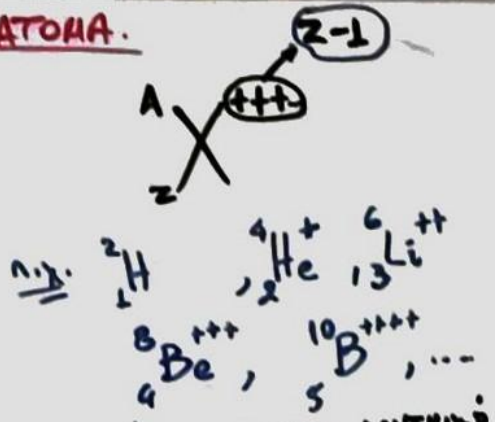 ΑΤΟΜΑ.
Z-1
A
+++
X
Z
π.χ. ²₁H , ⁴₂He⁺ , ⁶₃Li⁺⁺
⁸₄Be⁺⁺⁺ , ¹⁰₅B⁺⁺⁺⁺ , ...